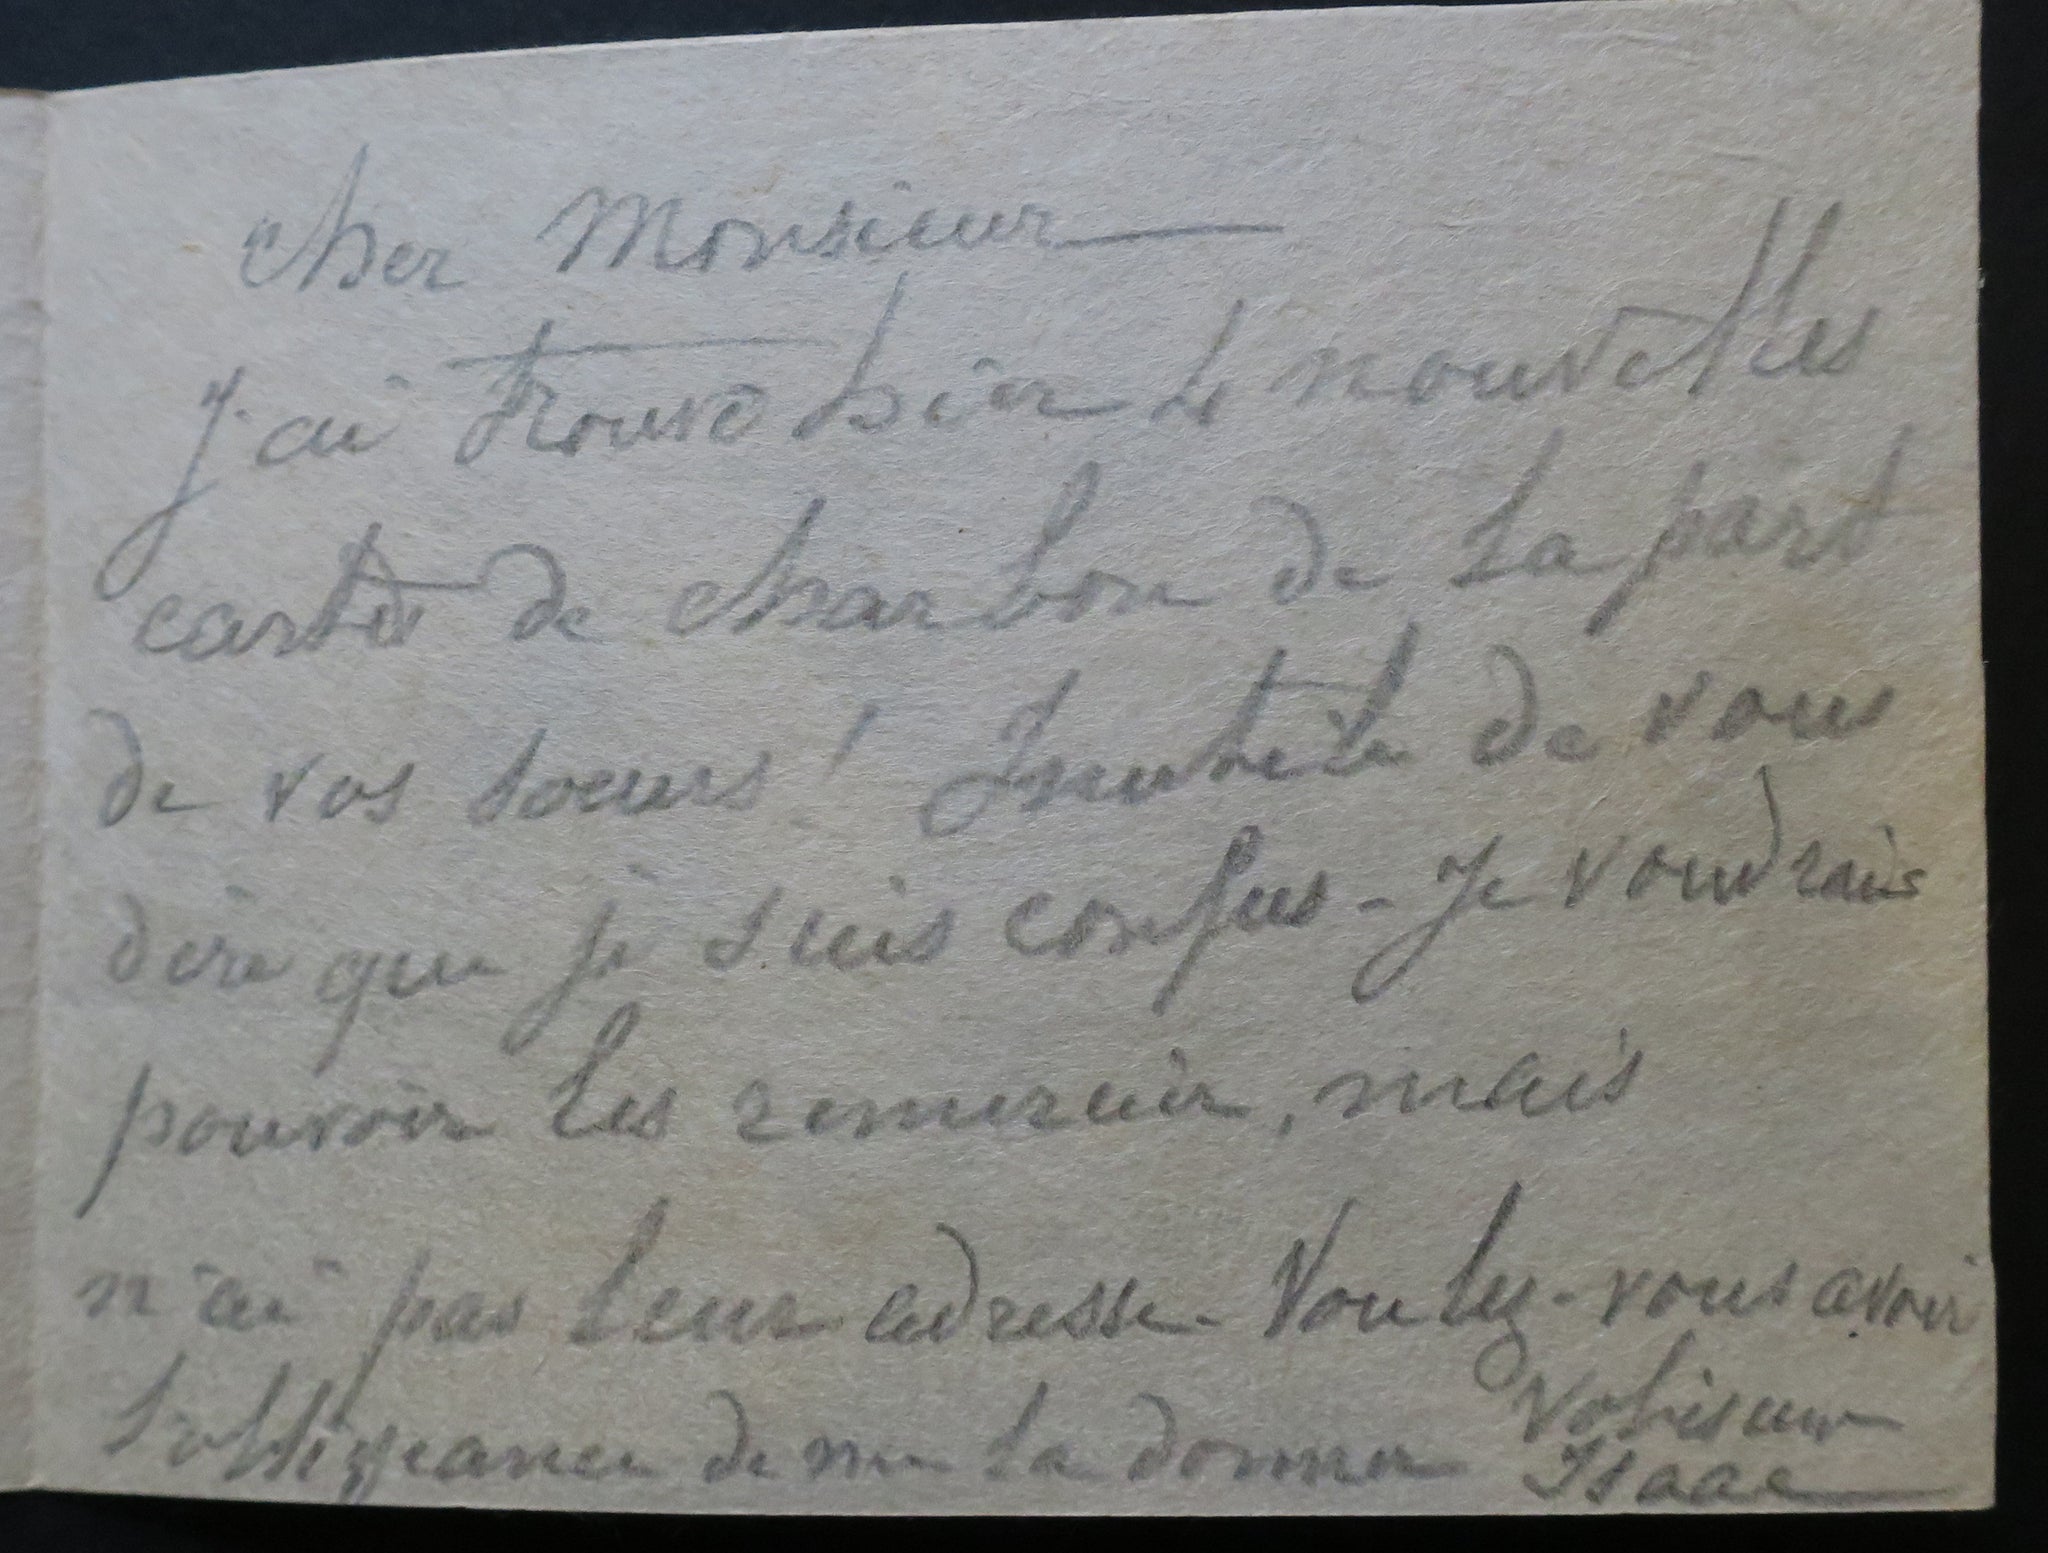 cher Monsieur
J'ai trouvé hier 4 nouvelles
cartes de charbon de la part
de vos soeurs! Inutile de vous
dire que je suis confus - Je voudrais
pouvoir les remercier, mais
n'ai pas leur adresse - Voulez-vous avoir
l'obligeance de me la donner
Isaac